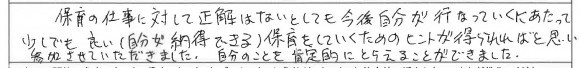 保育の仕事に対して正解はないとしても今後自分が行なっていくにあたって
少しでも良い(自分が納得できる)保育をしていくためのヒントが得られればと思い
参加させていただきました。自分のことを肯定的にとらえることができました。